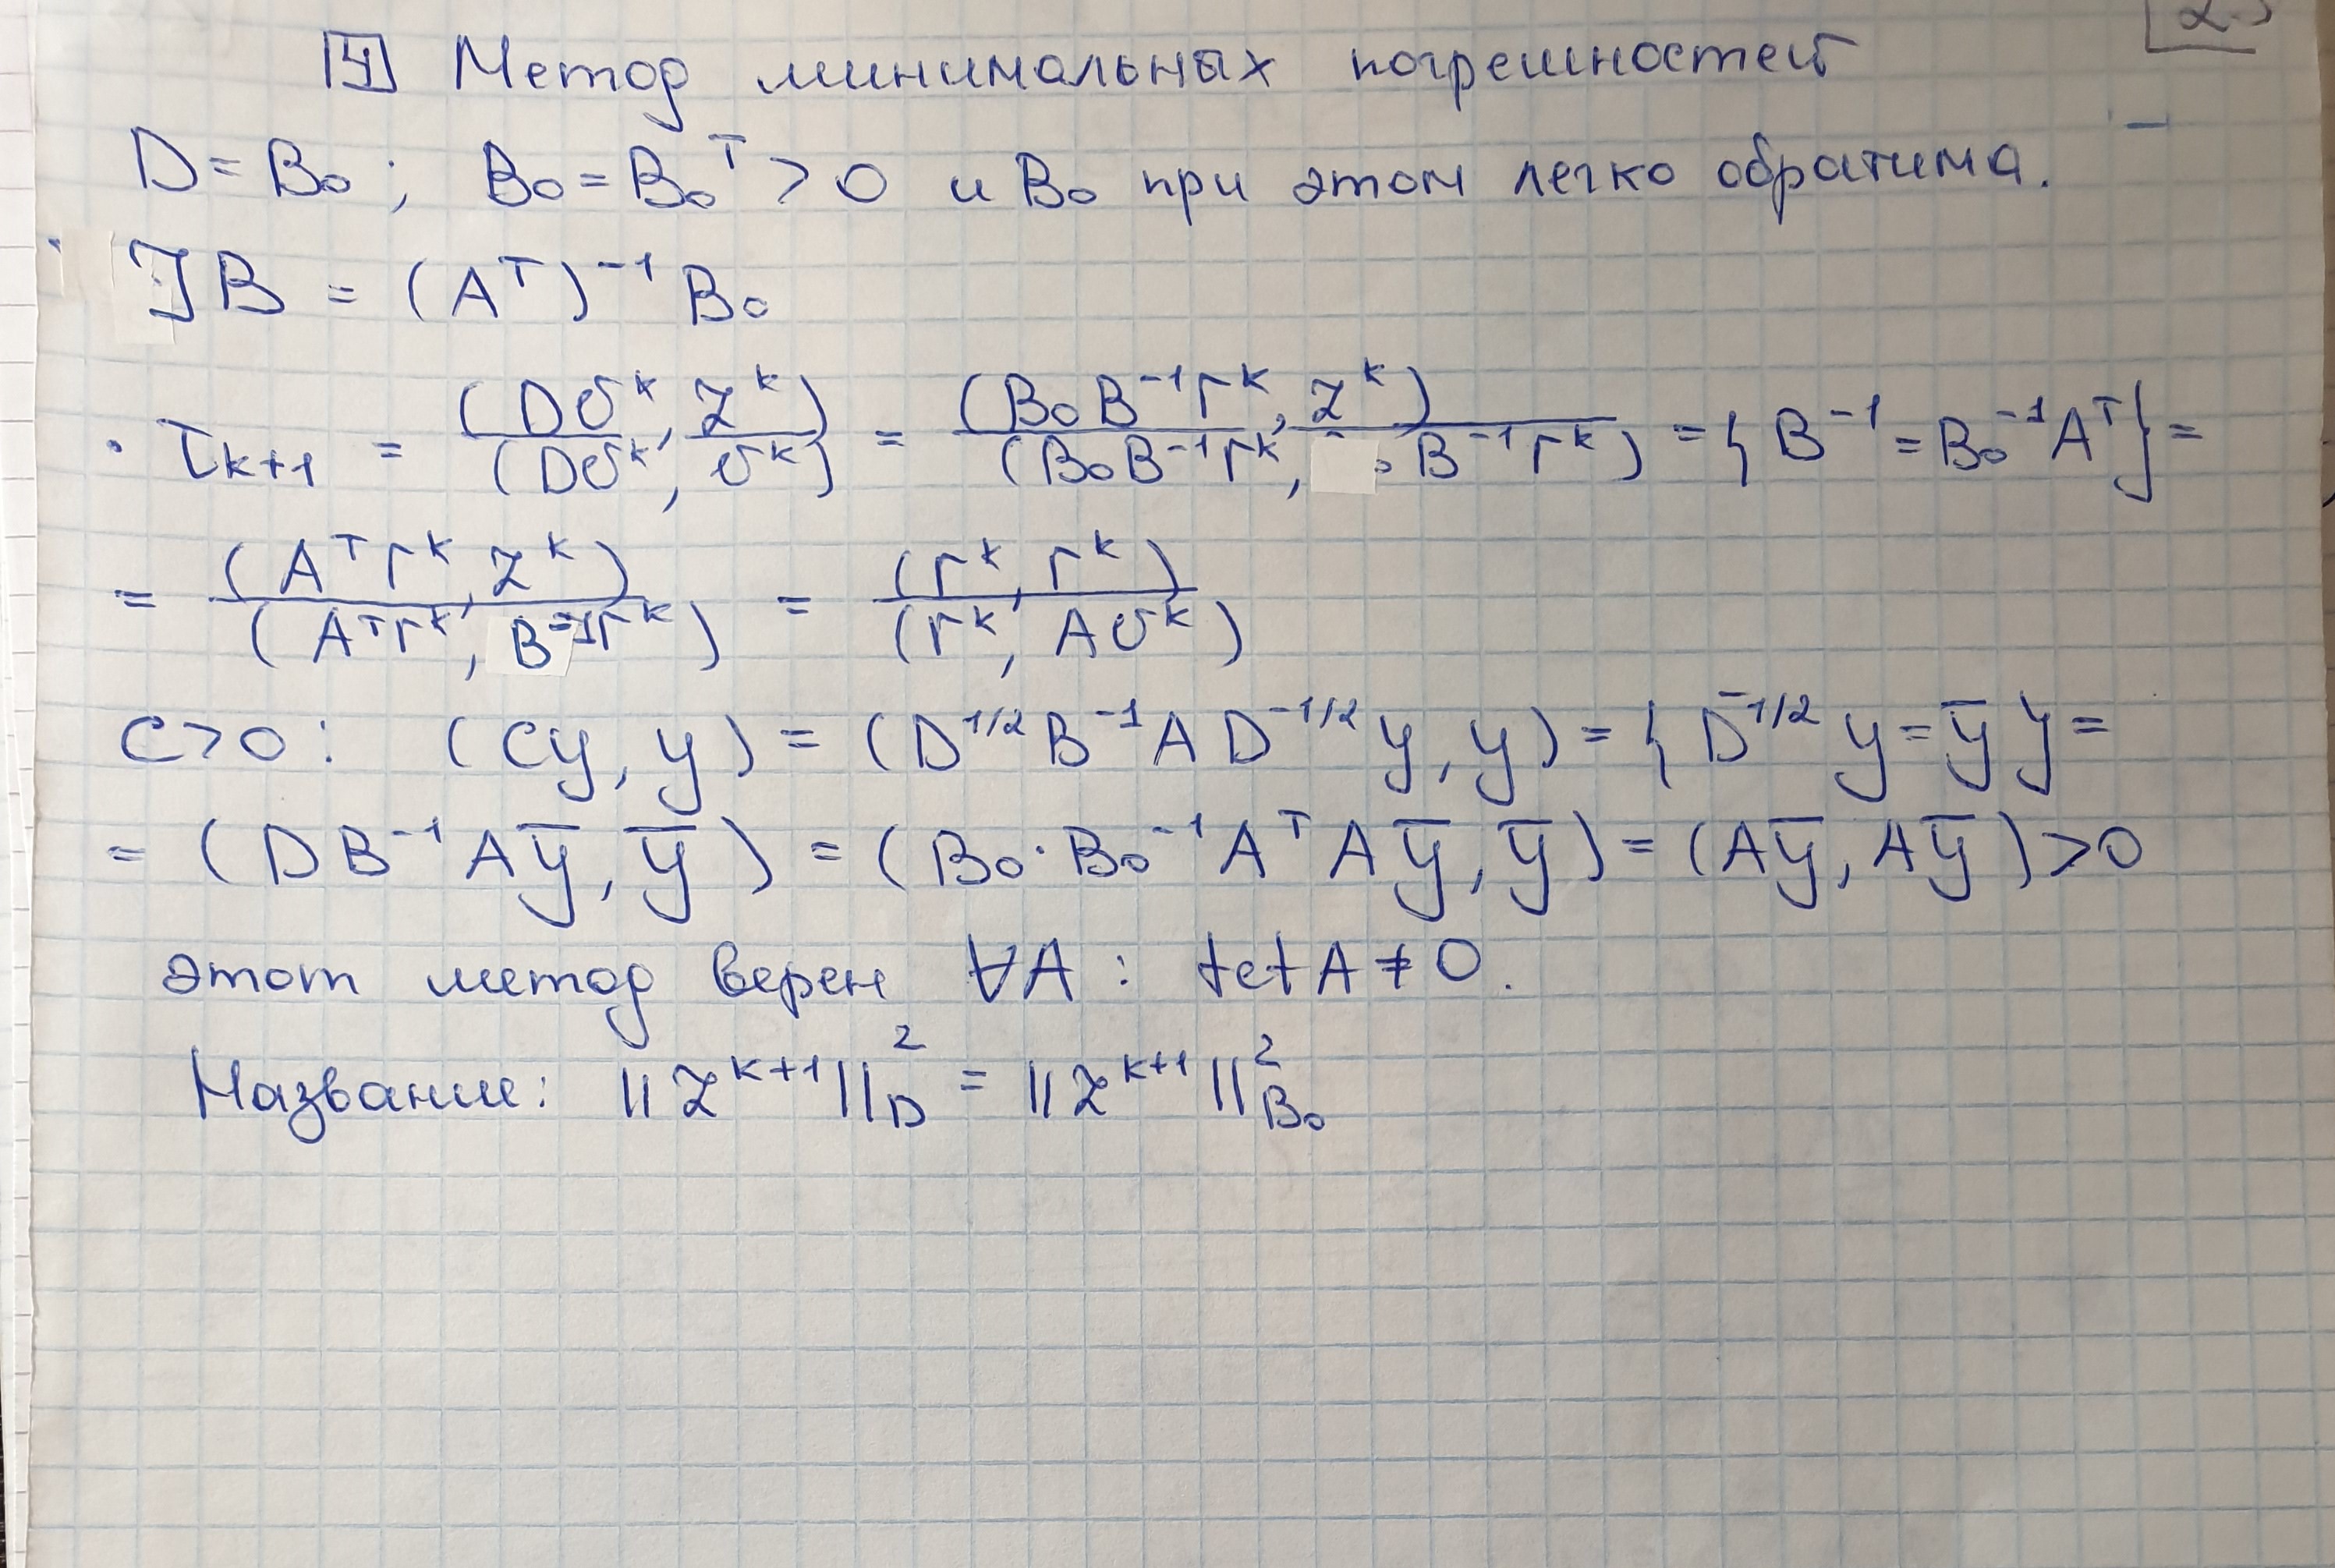 4 Метод минимальных погрешностей
D = B₀ ; B₀ = B₀ᵀ > 0 и B₀ при этом легко обратима.
]B = (Aᵀ)⁻¹ B₀
τₖ₊₁ = (Dσᵏ, zᵏ) / (Dσᵏ, σᵏ) = (B₀B⁻¹rᵏ, zᵏ) / (B₀B⁻¹rᵏ, B⁻¹rᵏ) = { B⁻¹ = B₀⁻¹Aᵀ } =
= (Aᵀrᵏ, zᵏ) / (Aᵀrᵏ, B⁻¹rᵏ) = (rᵏ, rᵏ) / (rᵏ, Aσᵏ)
C>0 : (Cy, y) = (D^1/2 B⁻¹ A D^-1/2 y, y) = { D^-1/2 y = ȳ } =
= (DB⁻¹Aȳ, ȳ) = (B₀·B₀⁻¹AᵀAȳ, ȳ) = (Aȳ, Aȳ) > 0
этот метод верен ∀A : tet A ≠ 0.
Название: ||zᵏ⁺¹||²_D = ||zᵏ⁺¹||²_B₀